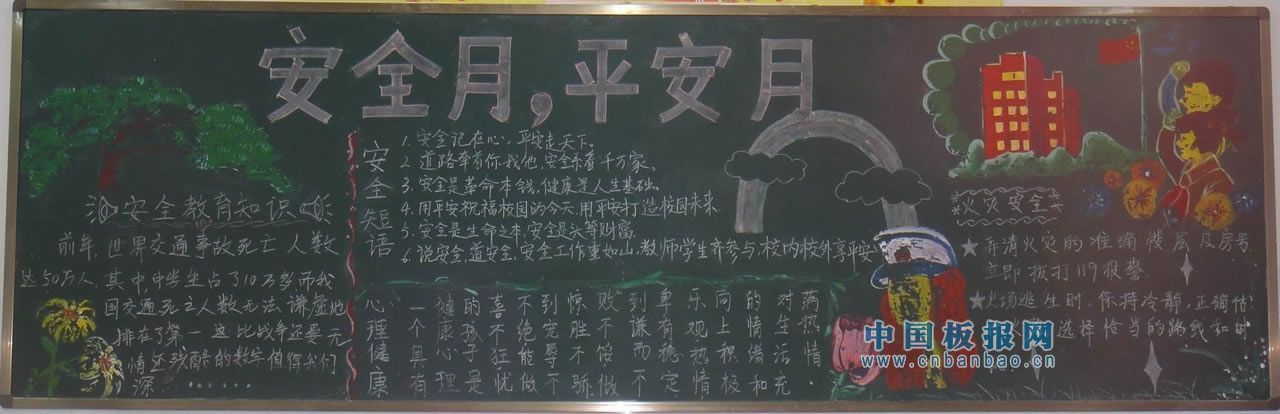 安全月,平安月
安全教育知识
前年,世界交通事故死亡人数
达50万人,其中中学生占了10万多而我
国交通死亡人数无法谦虚地
排在了第一,这比战争还要无
情还残酷的数字值得我们
深
安全短语
1.安全记在心,平安走天下。
2.道路牵有你我他,安全系着千万家。
3.安全是革命本钱,健康是人生基础。
4.用平安祝福校园的今天,用平安打造校园未来
5.安全是生命之本,安全是头等财富
6.说安全,道安全,安全工作重如山,教师学生齐参与,校内校外享平安
心理健康
一个具有
健康心理
的孩子是
喜不狂忧
不绝能做
到宠辱不
惊胜不骄
败不馁做
到谦而不
卑有稳定
乐观热情
向上积极
的情绪和
对生活充
满热情
火灾安全
★弄清火灾的准确楼层及房号
立即拔打119报警.
★火场逃生时,保持冷静,正确估
选择恰当的路线和时
中国板报网
www.cnbanbao.cn